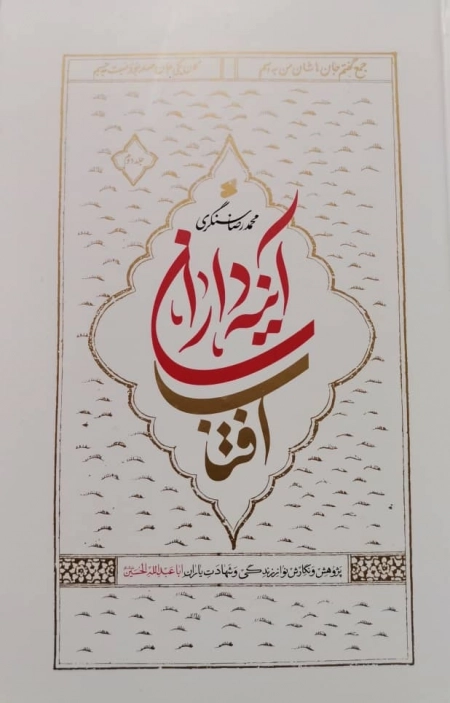 جمع گفتم جان‌هاشان من به اسم
جلد دوم
محمدرضا سنگری
آینه‌داران
آفتاب
پژوهش و نگارش نو از زندگی و شهادت یاران اباعبدالله الحسین